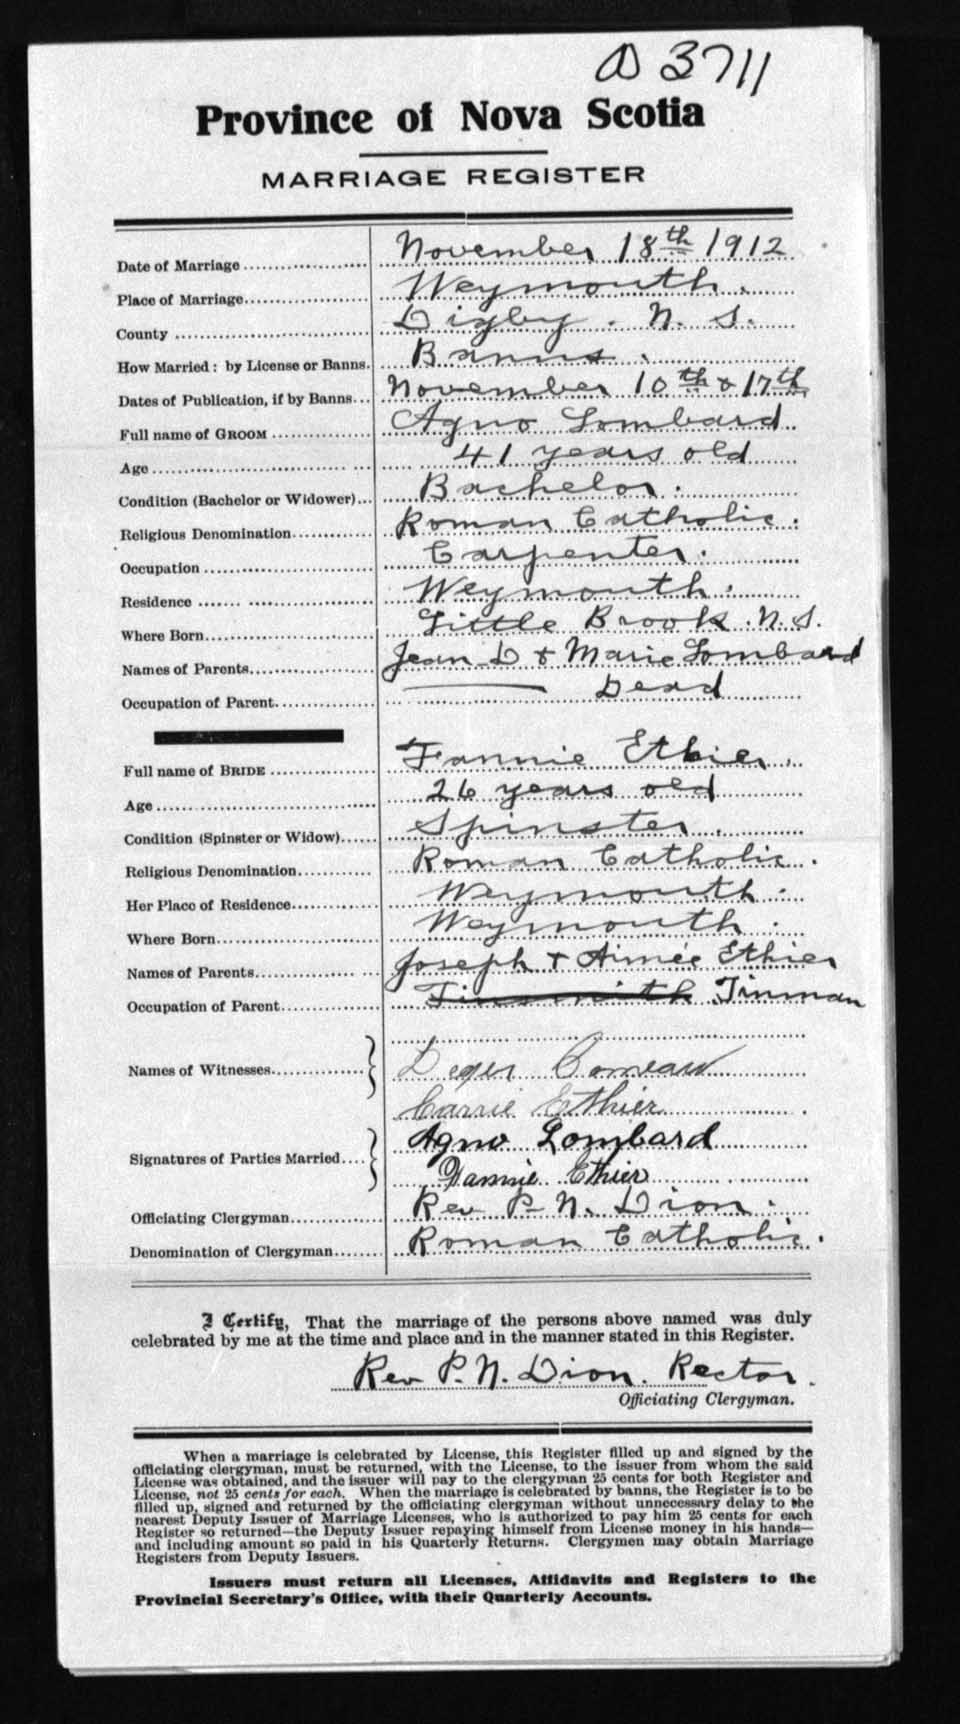 D 3711
Province of Nova Scotia
MARRIAGE REGISTER
Date of Marriage November 18th 1912
Place of Marriage Weymouth.
County Digby. N. S.
How Married: by License or Banns. Banns.
Dates of Publication, if by Banns November 10th & 17th
Full name of GROOM Agno Lombard
Age 41 years old
Condition (Bachelor or Widower) Bachelor.
Religious Denomination Roman Catholic.
Occupation Carpenter.
Residence Weymouth.
Where Born Little Brook. N. S.
Names of Parents Jean D & Marie Lombard
Occupation of Parent Dead
Full name of BRIDE Fannie Ethier.
Age 26 years old
Condition (Spinster or Widow) Spinster.
Religious Denomination Roman Catholic.
Her Place of Residence Weymouth.
Where Born Weymouth.
Names of Parents Joseph & Aimée Ethier
Occupation of Parent Tinsmith Tinman
Names of Witnesses Comeau
Carrie Ethier
Signatures of Parties Married Agno Lombard
Fannie Ethier
Officiating Clergyman Rev P. N. Dion.
Denomination of Clergyman Roman Catholic.
I Certify, That the marriage of the persons above named was duly
celebrated by me at the time and place and in the manner stated in this Register.
Rev P. N. Dion. Rector.
Officiating Clergyman.
When a marriage is celebrated by License, this Register filled up and signed by the
officiating clergyman, must be returned, with the License, to the issuer from whom the said
License was obtained, and the issuer will pay to the clergyman 25 cents for both Register and
License, not 25 cents for each. When the marriage is celebrated by banns, the Register is to be
filled up, signed and returned by the officiating clergyman without unnecessary delay to the
nearest Deputy Issuer of Marriage Licenses, who is authorized to pay him 25 cents for each
Register so returned—the Deputy Issuer repaying himself from License money in his hands—
and including amount so paid in his Quarterly Returns. Clergymen may obtain Marriage
Registers from Deputy Issuers.
Issuers must return all Licenses, Affidavits and Registers to the
Provincial Secretary's Office, with their Quarterly Accounts.